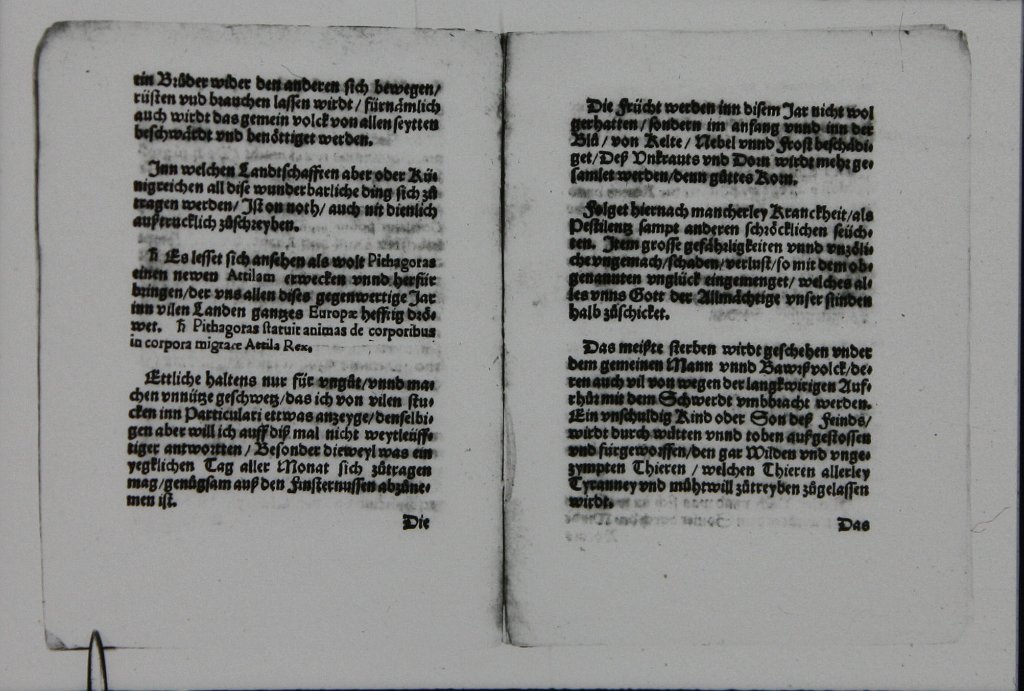 ein Brůder wider den anderen sich bewegen/
rüsten vnd brauchen lassen wirdt/ fürnämlich
auch wirdt das gemein volck von allen seytten
beschwärdt vnd benöttiget werden.
Inn welchen Landtschafften aber oder Kü⸗
nigreichen all dise wunderbarliche ding sich zů
tragen werden/ Ist on noth/ auch nit dienlich
außtrucklich zůschreyben.
♄ Es lesset sich ansehen als wolt Pithagoras
einen newen Attilam erwecken vnnd herfür
bringen/der vns allen dises gegenwertige Jar
inn vilen Landen gantzes Europæ hefftig dröe⸗
wet. ♄ Pithagoras statuit animas de corporibus
in corpora migrare Attila Rex.
Ettliche haltens nur für vngůt/vnnd ma⸗
chen vnnütze geschwetz/das ich von vilen stu⸗
cken inn Particulari ettwas anzeyge/denselbi⸗
gen aber will ich auff diß mal nicht weytleüff⸗
tiger antwortten/ Besonder dieweyl was ein
yegklichen Tag aller Monat sich zůtragen
mag/genůgsam auß den Finsternussen abzůne⸗
men ist.
Die
Die Frücht werden inn disem Jar nicht wol
gerhatten/sondern im anfang vnnd inn der
Blů/ von Kelte/ Nebel vnnd Frost beschädi⸗
get/Deß Vnkrauts vnd Dorn wirdt mehr ge⸗
samlet werden/denn gůttes Korn.
Folget hiernach mancherley Kranckheit/als
Pestilentz sampt anderen schröcklichen seüch⸗
ten. Item grosse gefährligkeiten vnnd vnzöli⸗
che vngemach/schaden/verlust/so mit dem ob⸗
genannten vnglück eingemenget/ welches al⸗
les vnns Gott der Allmächtige vnser sünden
halb zůschicket.
Das meißte sterben wirdt geschehen vnder
dem gemeinen Mann vnnd Bawrßvolck/de⸗
ren auch vil von wegen der langkwirigen Auf⸗
rhůr mit dem Schwerdt vmbbracht werden.
Ein vnschuldig Kind oder Son deß Feinds/
wirdt durch wütten vnnd toben außgestossen
vnd fürgeworffen/den gar Wilden vnd vnge⸗
zympten Thieren/ welchen Thieren allerley
Tyranney vnd můhtwill zůtreyben zůgelassen
wirdt.
Das